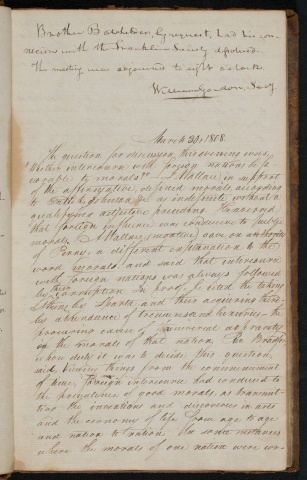 Brother Batchelder, by request, had his con-
nexion with the Franklin Society dissolved.
The meeting was adjourned to eight o'clock.
William Gordon, Secy.
March 30, 1808.
The question for discussion, this evening was,
"Whether intercourse with foreign nations be fa-
vorable to morals?" J. Wallace, in support
of the affirmative, defined morals, according
to &c. as indefinite without a
qualifying adjective preceding. He argued,
that foreign influence was conducive to
morals. A. Wallace (negative) gave, on authority
of Perry, a different explanation to the
word morals and said that intercourse
with foreign nations was always followed
by their corruption. In proof, he cited the taking
of by Sparta and their acquiring there-
by abundance of income and luxuries—the
procuring cause of universal depravity
in the morals of that nation. The Brother
whose duty it was to decide this question,
said, viewing things from the commencement
of time, foreign intercourse had conduced to
the prevalence of good morals as transmit-
ting the inventions and discoveries in arts
and the economy of life from age to age
and nation to nation. In some instances
where the morals of one nation were cor-